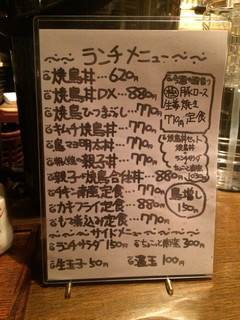 ランチメニュー
焼鳥丼…620円
焼鳥丼DX…880円
焼鳥ひつまぶし…770円
キムチ焼鳥丼…770円
鳥マヨ明太丼…770円
親子丼…770円
親子or焼鳥合盛丼…880円
チキン南蛮定食…770円
カキフライ定食…880円
もつ煮込み定食…770円
豚ロース
生姜焼き
770円定食
焼鳥丼セット
焼鳥丼
ランチサラダ
鳥増し
150円
サイドメニュー
ランチサラダ 150円
300円
生玉子 50円
温玉 100円